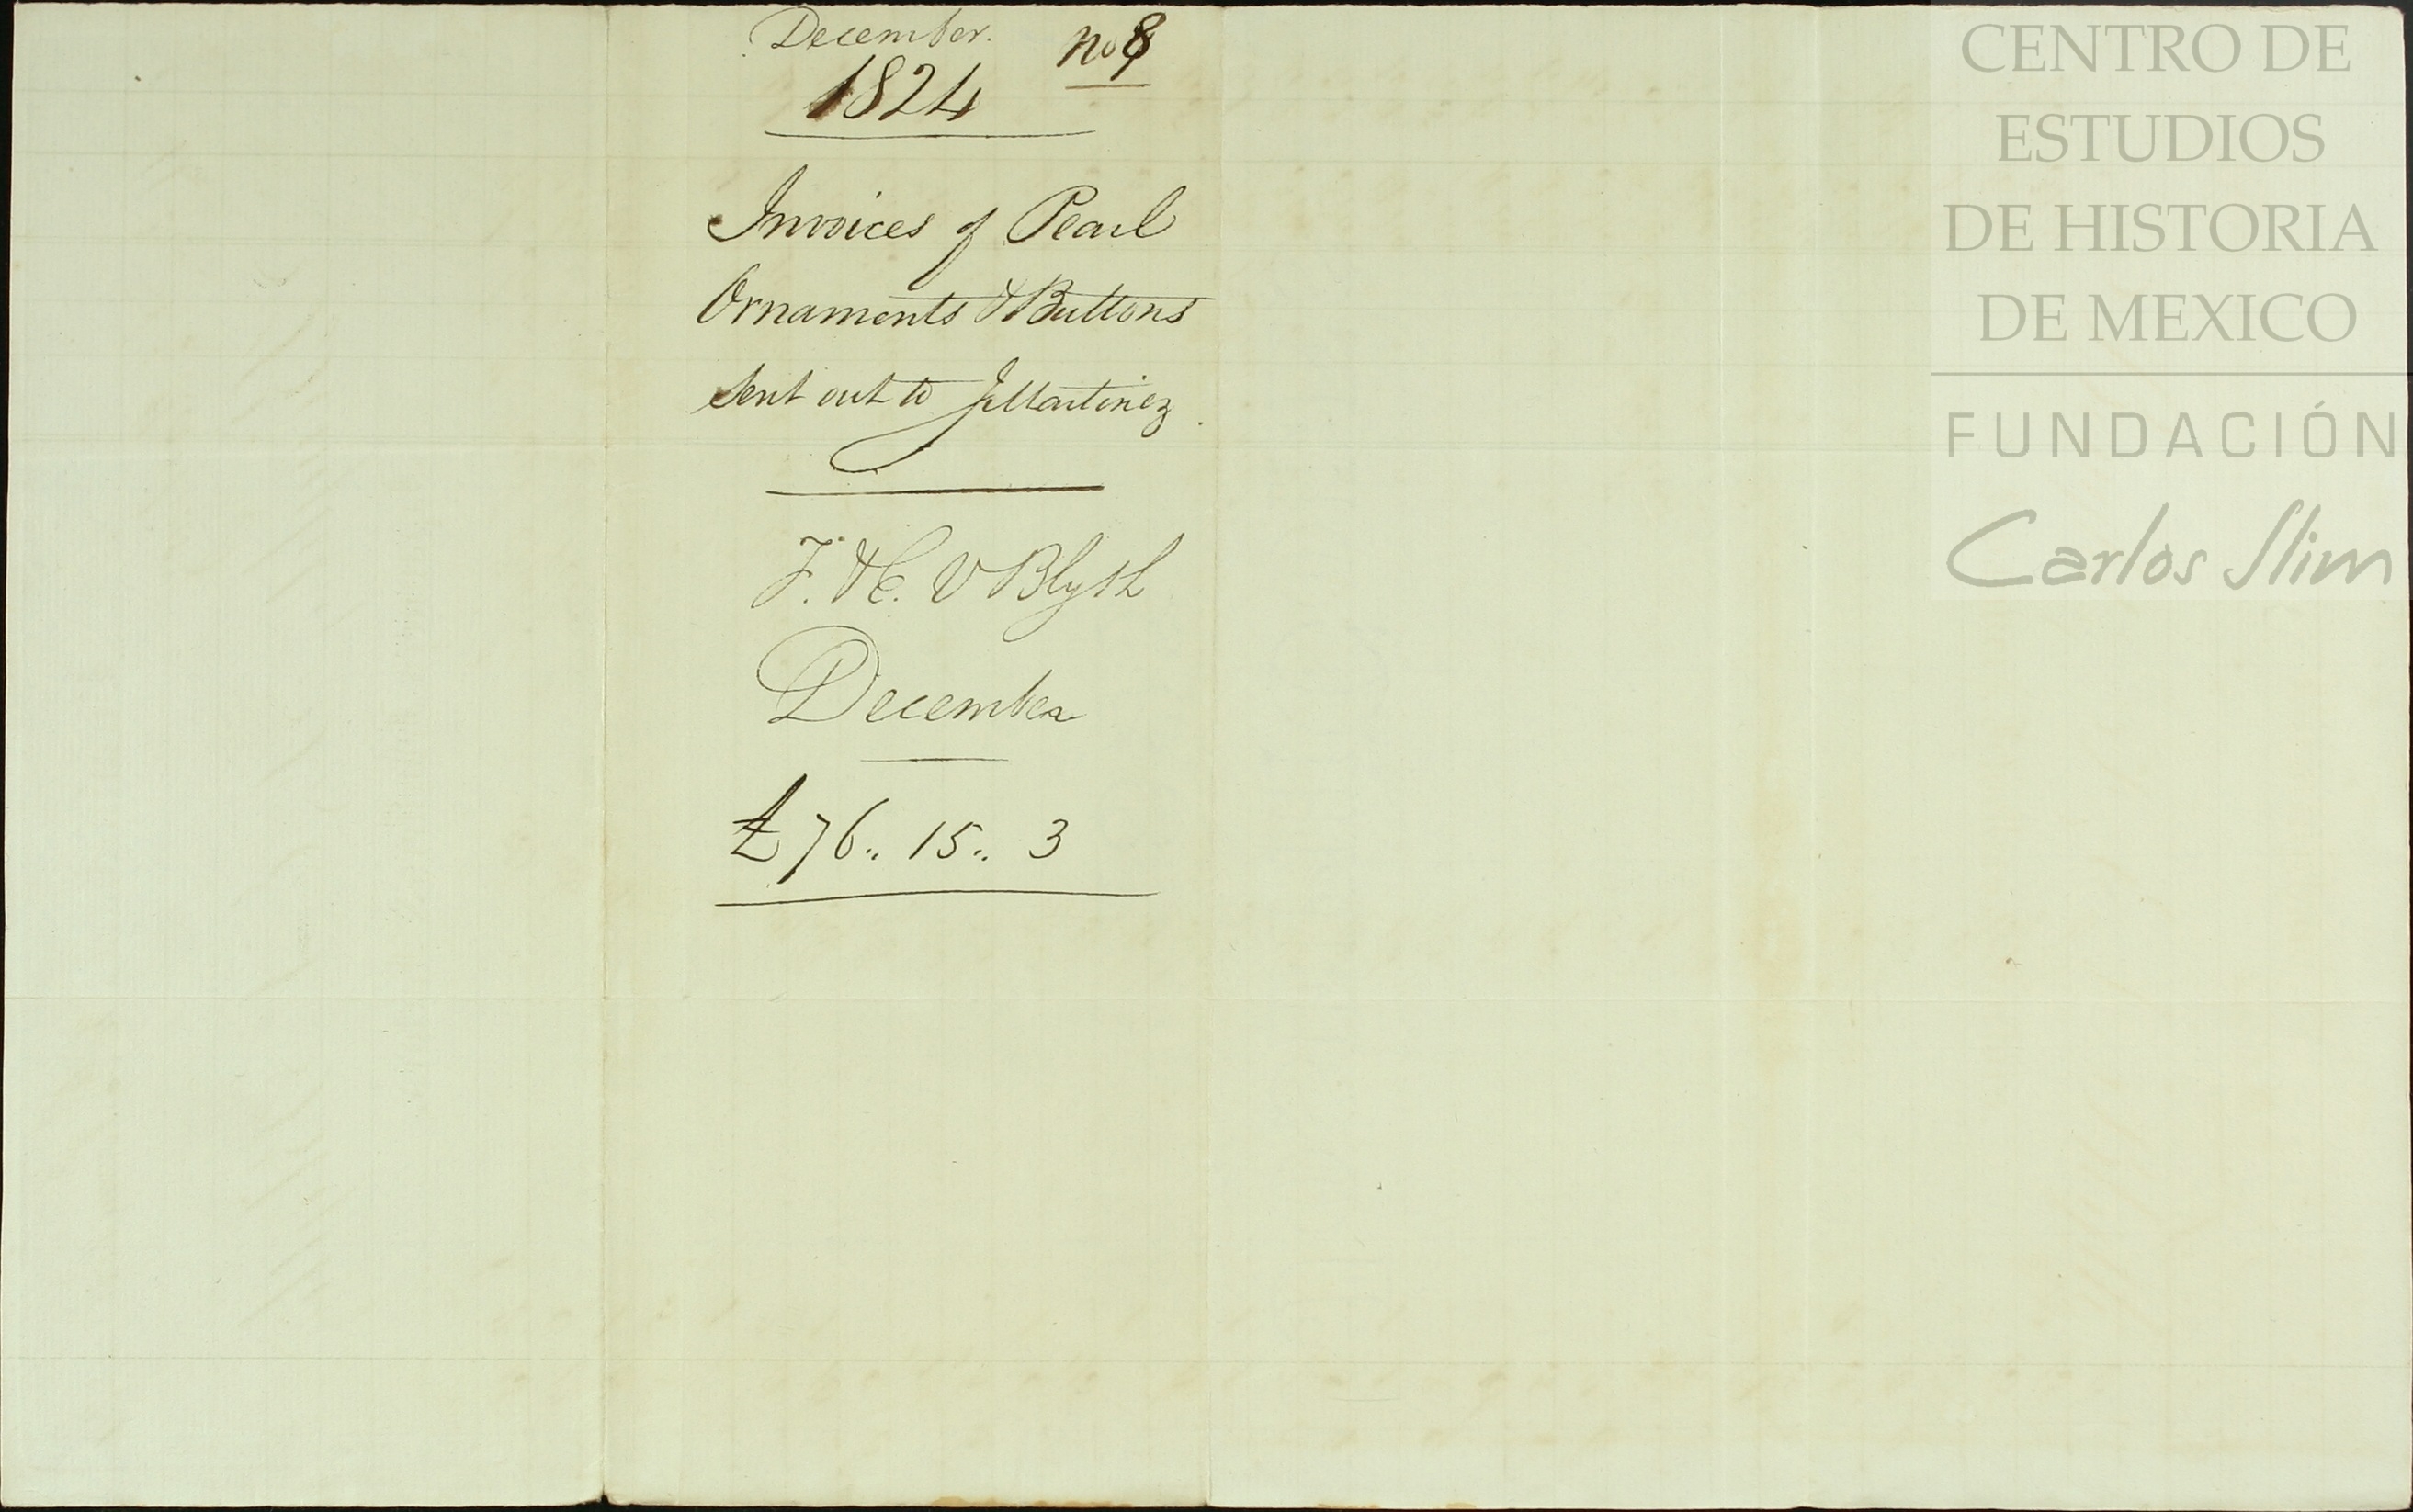 December. No 8
1824
Invoices of Pearl
Ornaments & Buttons
sent out to J Martinez.
F. & C. V Blyth
December
£ 76.. 15.. 3
CENTRO DE
ESTUDIOS
DE HISTORIA
DE MEXICO
FUNDACIÓN
Carlos Slim